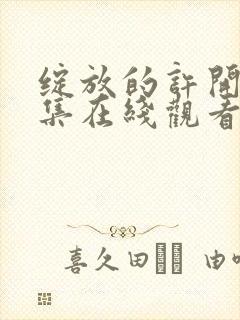 綻放的許開
集在綫觀看
喜久田 由